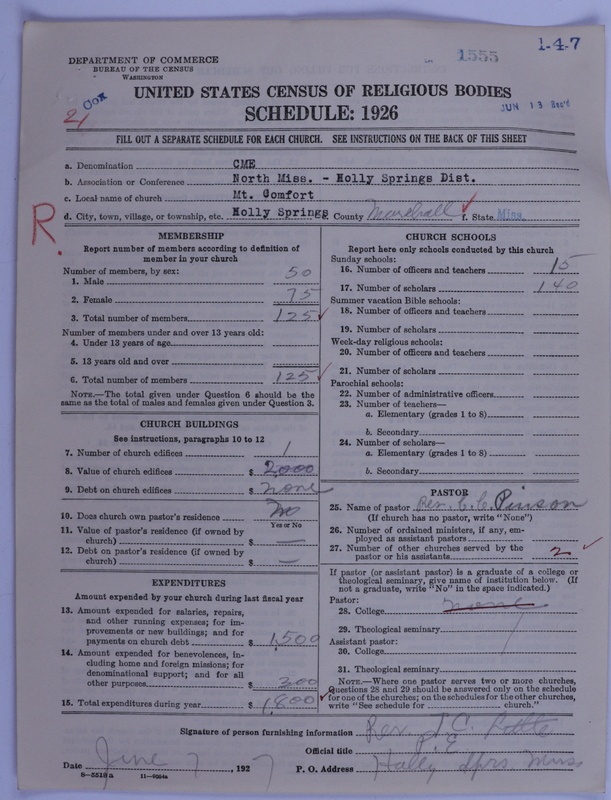 1-4-7
1555
DEPARTMENT OF COMMERCE
BUREAU OF THE CENSUS
WASHINGTON
UNITED STATES CENSUS OF RELIGIOUS BODIES
Cox
21
SCHEDULE: 1926
JUN 13
FILL OUT A SEPARATE SCHEDULE FOR EACH CHURCH. SEE INSTRUCTIONS ON THE BACK OF THIS SHEET
a. Denomination CME
b. Association or Conference North Miss. - Holly Springs Dist.
c. Local name of church Mt. Comfort
d. City, town, village, or township, etc. Holly Springs County Marshall f. State Miss.
R.
MEMBERSHIP
Report number of members according to definition of
member in your church
Number of members, by sex:
1. Male 50
2. Female 75
3. Total number of members 125
Number of members under and over 13 years old:
4. Under 13 years of age
5. 13 years old and over
6. Total number of members 125
NOTE.—The total given under Question 6 should be the
same as the total of males and females given under Question 3.
CHURCH BUILDINGS
See instructions, paragraphs 10 to 12
7. Number of church edifices 1
8. Value of church edifices $ 2,000
9. Debt on church edifices $ none
10. Does church own pastor's residence no
Yes or No
11. Value of pastor's residence (if owned by
church) $ —
12. Debt on pastor's residence (if owned by
church) $ —
EXPENDITURES
Amount expended by your church during last fiscal year
13. Amount expended for salaries, repairs,
and other running expenses; for im-
provements or new buildings; and for
payments on church debt $ 1,500
14. Amount expended for benevolences, in-
cluding home and foreign missions; for
denominational support; and for all
other purposes $ 300
15. Total expenditures during year $ 1,800
CHURCH SCHOOLS
Report here only schools conducted by this church
Sunday schools:
16. Number of officers and teachers 15
17. Number of scholars 140
Summer vacation Bible schools:
18. Number of officers and teachers
19. Number of scholars
Week-day religious schools:
20. Number of officers and teachers
21. Number of scholars
Parochial schools:
22. Number of administrative officers
23. Number of teachers—
a. Elementary (grades 1 to 8)
b. Secondary
24. Number of scholars—
a. Elementary (grades 1 to 8)
b. Secondary
PASTOR
25. Name of pastor Rev. C. C. Pinson
(If church has no pastor, write "None")
26. Number of ordained ministers, if any, em-
ployed as assistant pastors
27. Number of other churches served by the
pastor or his assistants 2
If pastor (or assistant pastor) is a graduate of a college or
theological seminary, give name of institution below. (If
not a graduate, write "No" in the space indicated.)
Pastor:
28. College none
29. Theological seminary
Assistant pastor:
30. College
31. Theological seminary
NOTE.—Where one pastor serves two or more churches,
Questions 28 and 29 should be answered only on the schedule
for one of the churches; on the schedules for the other churches,
write "See schedule for church."
Signature of person furnishing information Rev. J. C.
Official title P. E
Date June 7, 1927 P. O. Address Holly Sprs. Miss
8—5518a 11—9064a